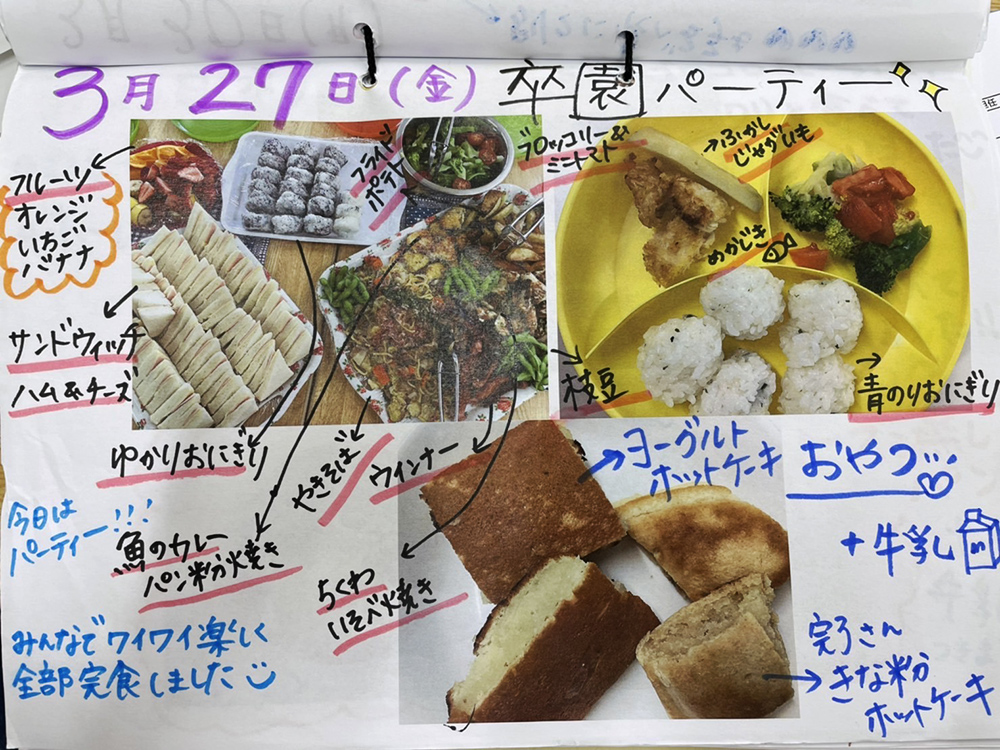 3月27日(金) 卒園パーティー
フルーツ
オレンジ
いちご
バナナ
フライド
ポテト
ブロッコリー&
ミニトマト
ふかし
じゃがいも
めかじき
サンドウィッチ
ハム&チーズ
枝豆
青のりおにぎり
ゆかりおにぎり
やきそば
ウインナー
ヨーグルト
ホットケーキ
おやつ
+牛乳
今日は
パーティー!!!
魚のカレー
パン粉焼き
ちくわ
いそべ焼き
みんなでワイワイ楽しく
全部完食しました
完了さん
きな粉
ホットケーキ